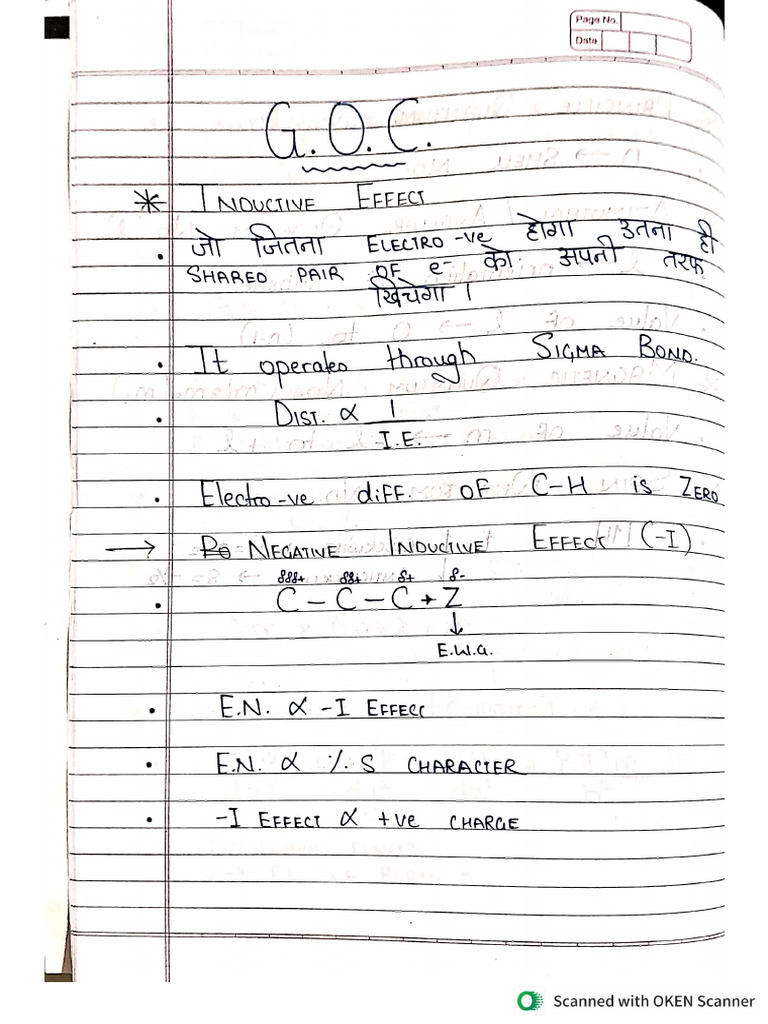 Page No.
Date
G.O.C.
* INDUCTIVE EFFECT
• जो जितना ELECTRO -ve होगा उतना ही
SHARED PAIR OF e- को अपनी तरफ
खिंचेगा ।
• It operates through SIGMA BOND.
• DIST. ∝ 1
I.E.
• Electro-ve diff. OF C-H is ZERO
→ NEGATIVE INDUCTIVE EFFECT (-I)
δδδ+ δδ+ δ+ δ-
• C - C - C → Z
↓
E.W.G.
• E.N. ∝ -I EFFECT
• E.N. ∝ % S CHARACTER
• -I EFFECT ∝ +ve CHARGE
Scanned with OKEN Scanner